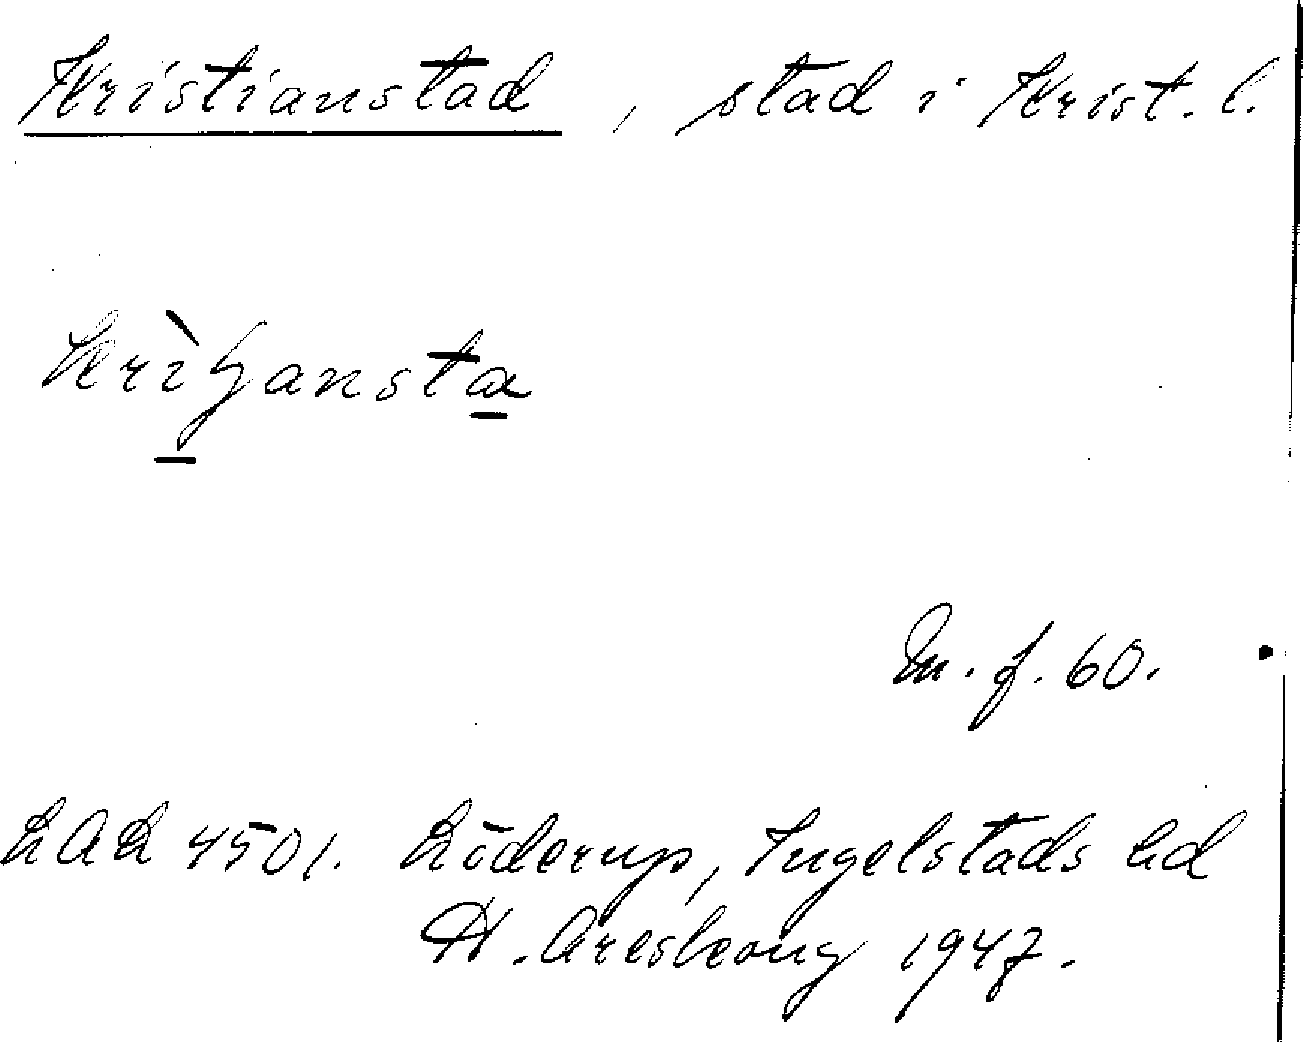 Kristianstad, stad i Krist. l.
M. f. 60.
LAL 4501. Löderup, Ingelstads hd
H. Areskoug 1947.